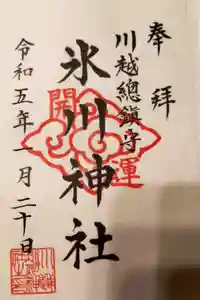 奉拝
川越總鎮守
氷川神社
開運
令和五年一月二十日